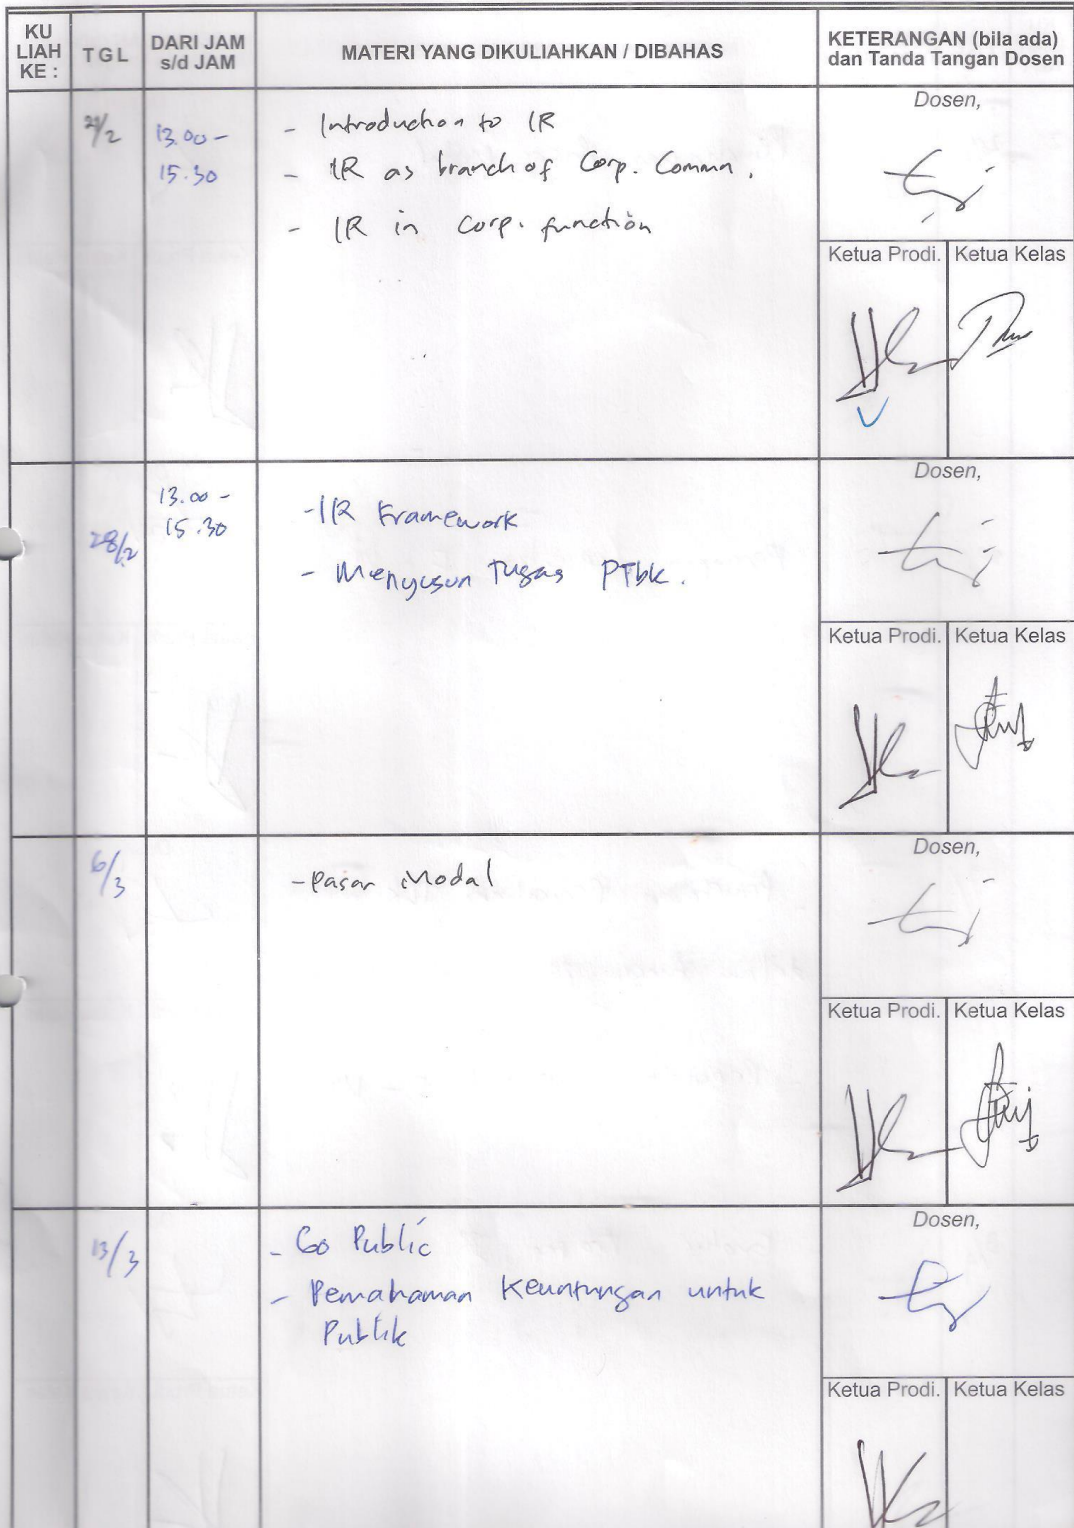 KU LIAH KE :
TGL
DARI JAM s/d JAM
MATERI YANG DIKULIAHKAN / DIBAHAS
KETERANGAN (bila ada)
dan Tanda Tangan Dosen
21/2
13.00 -
15.30
- Introduction to IR
- IR as branch of Corp. Commn.
- IR in Corp. function
Dosen,
Ketua Prodi.
Ketua Kelas
28/2
13.00 -
15.30
- IR Framework
- Menyusun Tugas PTbk.
Dosen,
Ketua Prodi.
Ketua Kelas
6/3
- Pasar Modal
Dosen,
Ketua Prodi.
Ketua Kelas
13/3
- Go Public
- Pemahaman Keuntungan untuk
Publik
Dosen,
Ketua Prodi.
Ketua Kelas